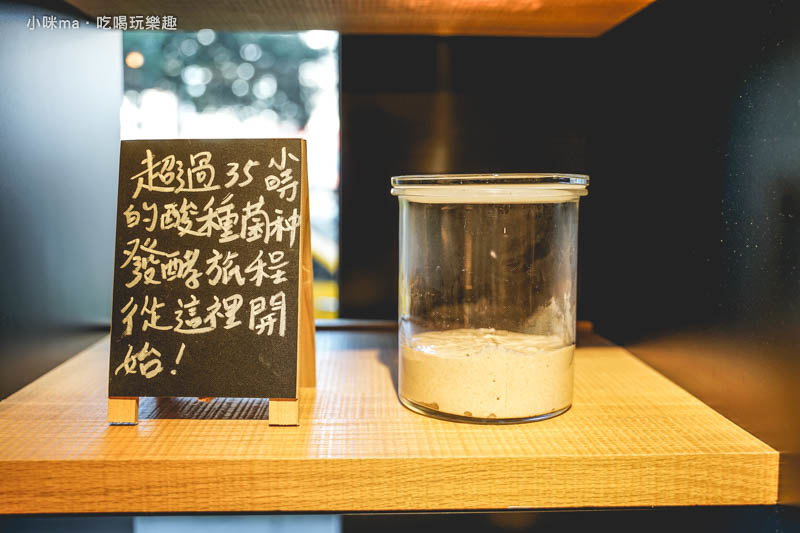 小咪ma·吃喝玩樂趣
超過35小時
的酸種菌种
發酵旅程
從這裡開
始！